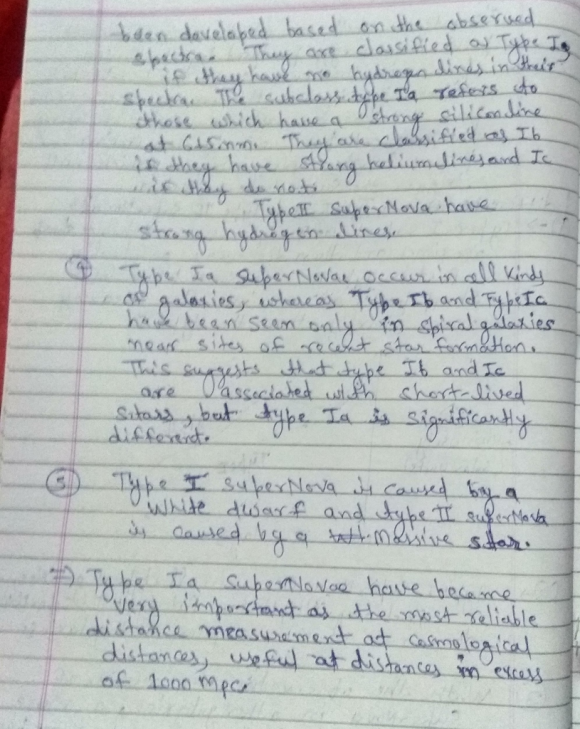 been developed based on the observed
spectra. They are classified as Type I
if they have no hydrogen lines in their
spectra. The subclass type Ia refers to
those which have a strong silicon line
at 615nm. They are classified as Ib
if they have strong helium lines and Ic
if they do not.
Type II SuperNova have
strong hydrogen lines.
4 Type Ia SuperNovae occur in all kinds
of galaxies, whereas Type Ib and Type Ic
have been seen only in spiral galaxies
near sites of recent star formation.
This suggests that type Ib and Ic
are associated with short-lived
stars, but type Ia is significantly
different.
5 Type I SuperNova is caused by a
White dwarf and type II superNova
is caused by a massive star.
=) Type Ia SuperNovae have become
very important as the most reliable
distance measurement at cosmological
distances, useful at distances in excess
of 1000 mpc.